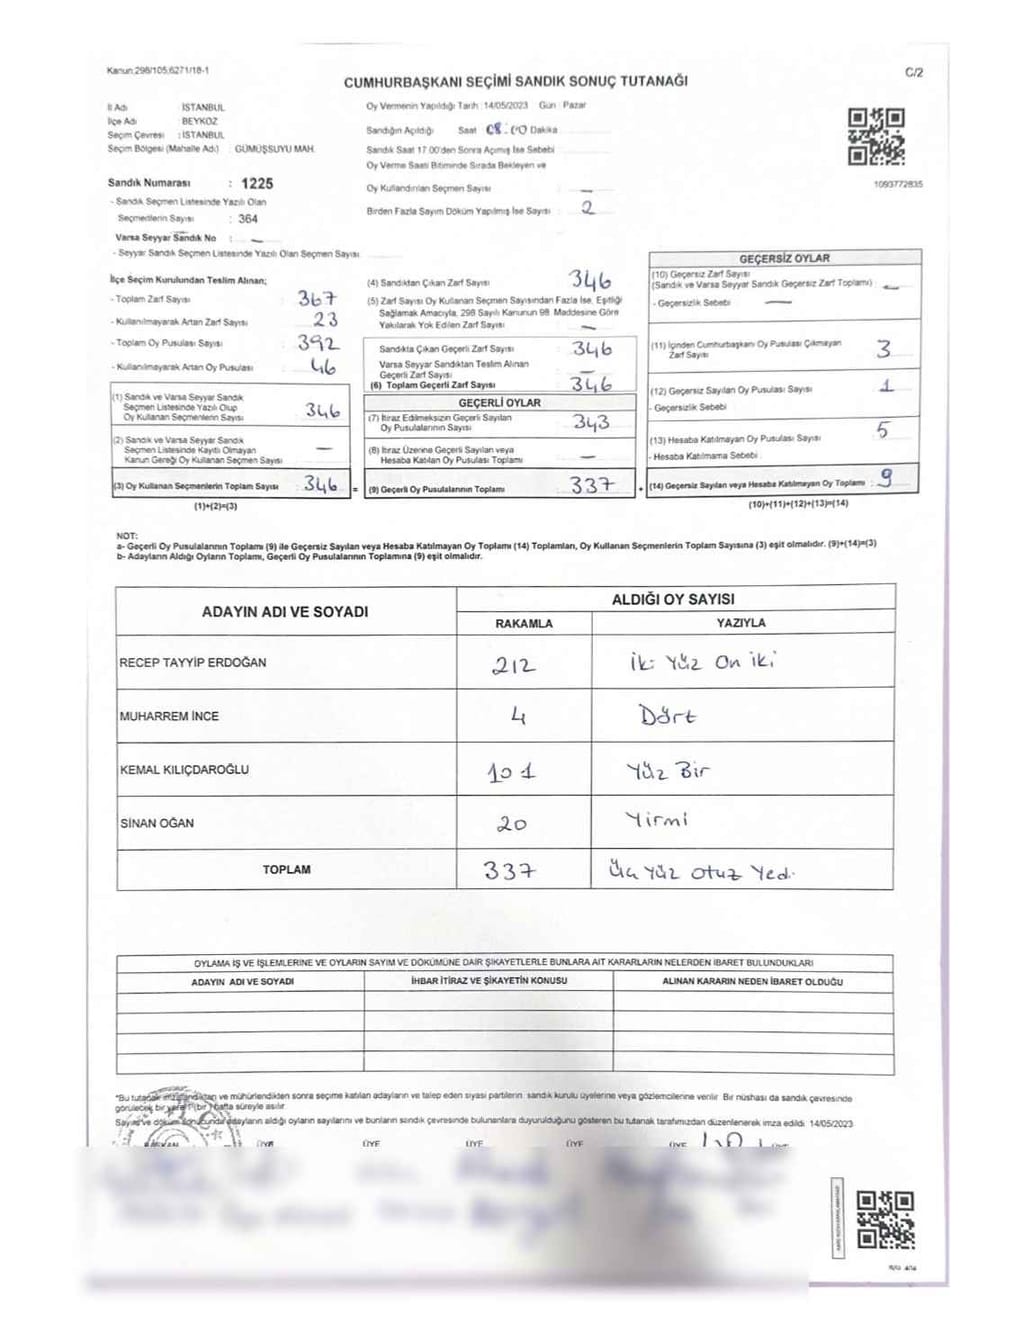 Kanun:298/105;6271/18-1
C/2
CUMHURBAŞKANI SEÇİMİ SANDIK SONUÇ TUTANAĞI
İl Adı İSTANBUL
İlçe Adı : BEYKOZ
Seçim Çevresi : İSTANBUL
Seçim Bölgesi (Mahalle Adı) : GÜMÜŞSUYU MAH.
Sandık Numarası : 1225
- Sandık Seçmen Listesinde Yazılı Olan
Seçmenlerin Sayısı : 364
Varsa Seyyar Sandık No : —
- Seyyar Sandık Seçmen Listesinde Yazılı Olan Seçmen Sayısı
Oy Vermenin Yapıldığı Tarih :14/05/2023 Gün : Pazar
Sandığın Açıldığı Saat 08:00 Dakika
Sandık Saat 17.00'den Sonra Açılmış İse Sebebi
Oy Verme Saati Bitiminde Sırada Bekleyen ve
Oy Kullandırılan Seçmen Sayısı : —
Birden Fazla Sayım Döküm Yapılmış İse Sayısı : 2
1093772835
İlçe Seçim Kurulundan Teslim Alınan;
- Toplam Zarf Sayısı : 367
- Kullanılmayarak Artan Zarf Sayısı : 23
- Toplam Oy Pusulası Sayısı : 392
- Kullanılmayarak Artan Oy Pusulası : 46
(1) Sandık ve Varsa Seyyar Sandık
Seçmen Listesinde Yazılı Olup
Oy Kullanan Seçmenlerin Sayısı : 346
(2) Sandık ve Varsa Seyyar Sandık
Seçmen Listesinde Kayıtlı Olmayan
Kanun Gereği Oy Kullanan Seçmen Sayısı : —
(3) Oy Kullanan Seçmenlerin Toplam Sayısı : 346 =
(1)+(2)=(3)
(4) Sandıktan Çıkan Zarf Sayısı : 346
(5) Zarf Sayısı Oy Kullanan Seçmen Sayısından Fazla İse, Eşitliği
Sağlamak Amacıyla, 298 Sayılı Kanunun 98. Maddesine Göre
Yakılarak Yok Edilen Zarf Sayısı : —
Sandıkta Çıkan Geçerli Zarf Sayısı : 346
Varsa Seyyar Sandıktan Teslim Alınan
Geçerli Zarf Sayısı : —
(6) Toplam Geçerli Zarf Sayısı : 346
GEÇERLİ OYLAR
(7) İtiraz Edilmeksizin Geçerli Sayılan
Oy Pusulalarının Sayısı : 343
(8) İtiraz Üzerine Geçerli Sayılan veya
Hesaba Katılan Oy Pusulası Toplamı : —
(9) Geçerli Oy Pusulalarının Toplamı : 337 +
GEÇERSİZ OYLAR
(10) Geçersiz Zarf Sayısı
(Sandık ve Varsa Seyyar Sandık Geçersiz Zarf Toplamı) : —
- Geçersizlik Sebebi —
(11) İçinden Cumhurbaşkanı Oy Pusulası Çıkmayan
Zarf Sayısı : 3
(12) Geçersiz Sayılan Oy Pusulası Sayısı : 1
- Geçersizlik Sebebi
(13) Hesaba Katılmayan Oy Pusulası Sayısı : 5
- Hesaba Katılmama Sebebi :
(14) Geçersiz Sayılan veya Hesaba Katılmayan Oy Toplamı : 9
(10)+(11)+(12)+(13)=(14)
NOT:
a- Geçerli Oy Pusulalarının Toplamı (9) ile Geçersiz Sayılan veya Hesaba Katılmayan Oy Toplamı (14) Toplamları, Oy Kullanan Seçmenlerin Toplam Sayısına (3) eşit olmalıdır. (9)+(14)=(3)
b- Adayların Aldığı Oyların Toplamı, Geçerli Oy Pusulalarının Toplamına (9) eşit olmalıdır.
ADAYIN ADI VE SOYADI
ALDIĞI OY SAYISI
RAKAMLA YAZIYLA
RECEP TAYYİP ERDOĞAN 212 İki Yüz On iki
MUHARREM İNCE 4 Dört
KEMAL KILIÇDAROĞLU 101 Yüz Bir
SİNAN OĞAN 20 Yirmi
TOPLAM 337 Üç Yüz Otuz Yedi
OYLAMA İŞ VE İŞLEMLERİNE VE OYLARIN SAYIM VE DÖKÜMÜNE DAİR ŞİKAYETLERLE BUNLARA AİT KARARLARIN NELERDEN İBARET BULUNDUKLARI
ADAYIN ADI VE SOYADI İHBAR İTİRAZ VE ŞİKAYETİN KONUSU ALINAN KARARIN NEDEN İBARET OLDUĞU
*Bu tutanak imzalandıktan ve mühürlendikten sonra seçime katılan adayların ve talep eden siyasi partilerin sandık kurulu üyelerine veya gözlemcilerine verilir. Bir nüshası da sandık çevresinde
görülecek bir yere 1 (bir) hafta süreyle asılır.
Sayım ve döküm sonucunda adayların aldığı oyların sayılarını ve bunların sandık çevresinde bulunanlara duyurulduğunu gösteren bu tutanak tarafımızdan düzenlenerek imza edildi. 14/05/2023
BAŞKAN ÜYE ÜYE ÜYE ÜYE